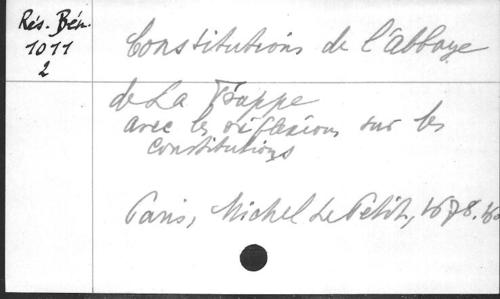 Rés. Bén.
1011
2
Constitutions de l'Abbaye
de La Trappe
avec les réflexions sur les
constitutions
Paris, Michel Le Petit, 1678.